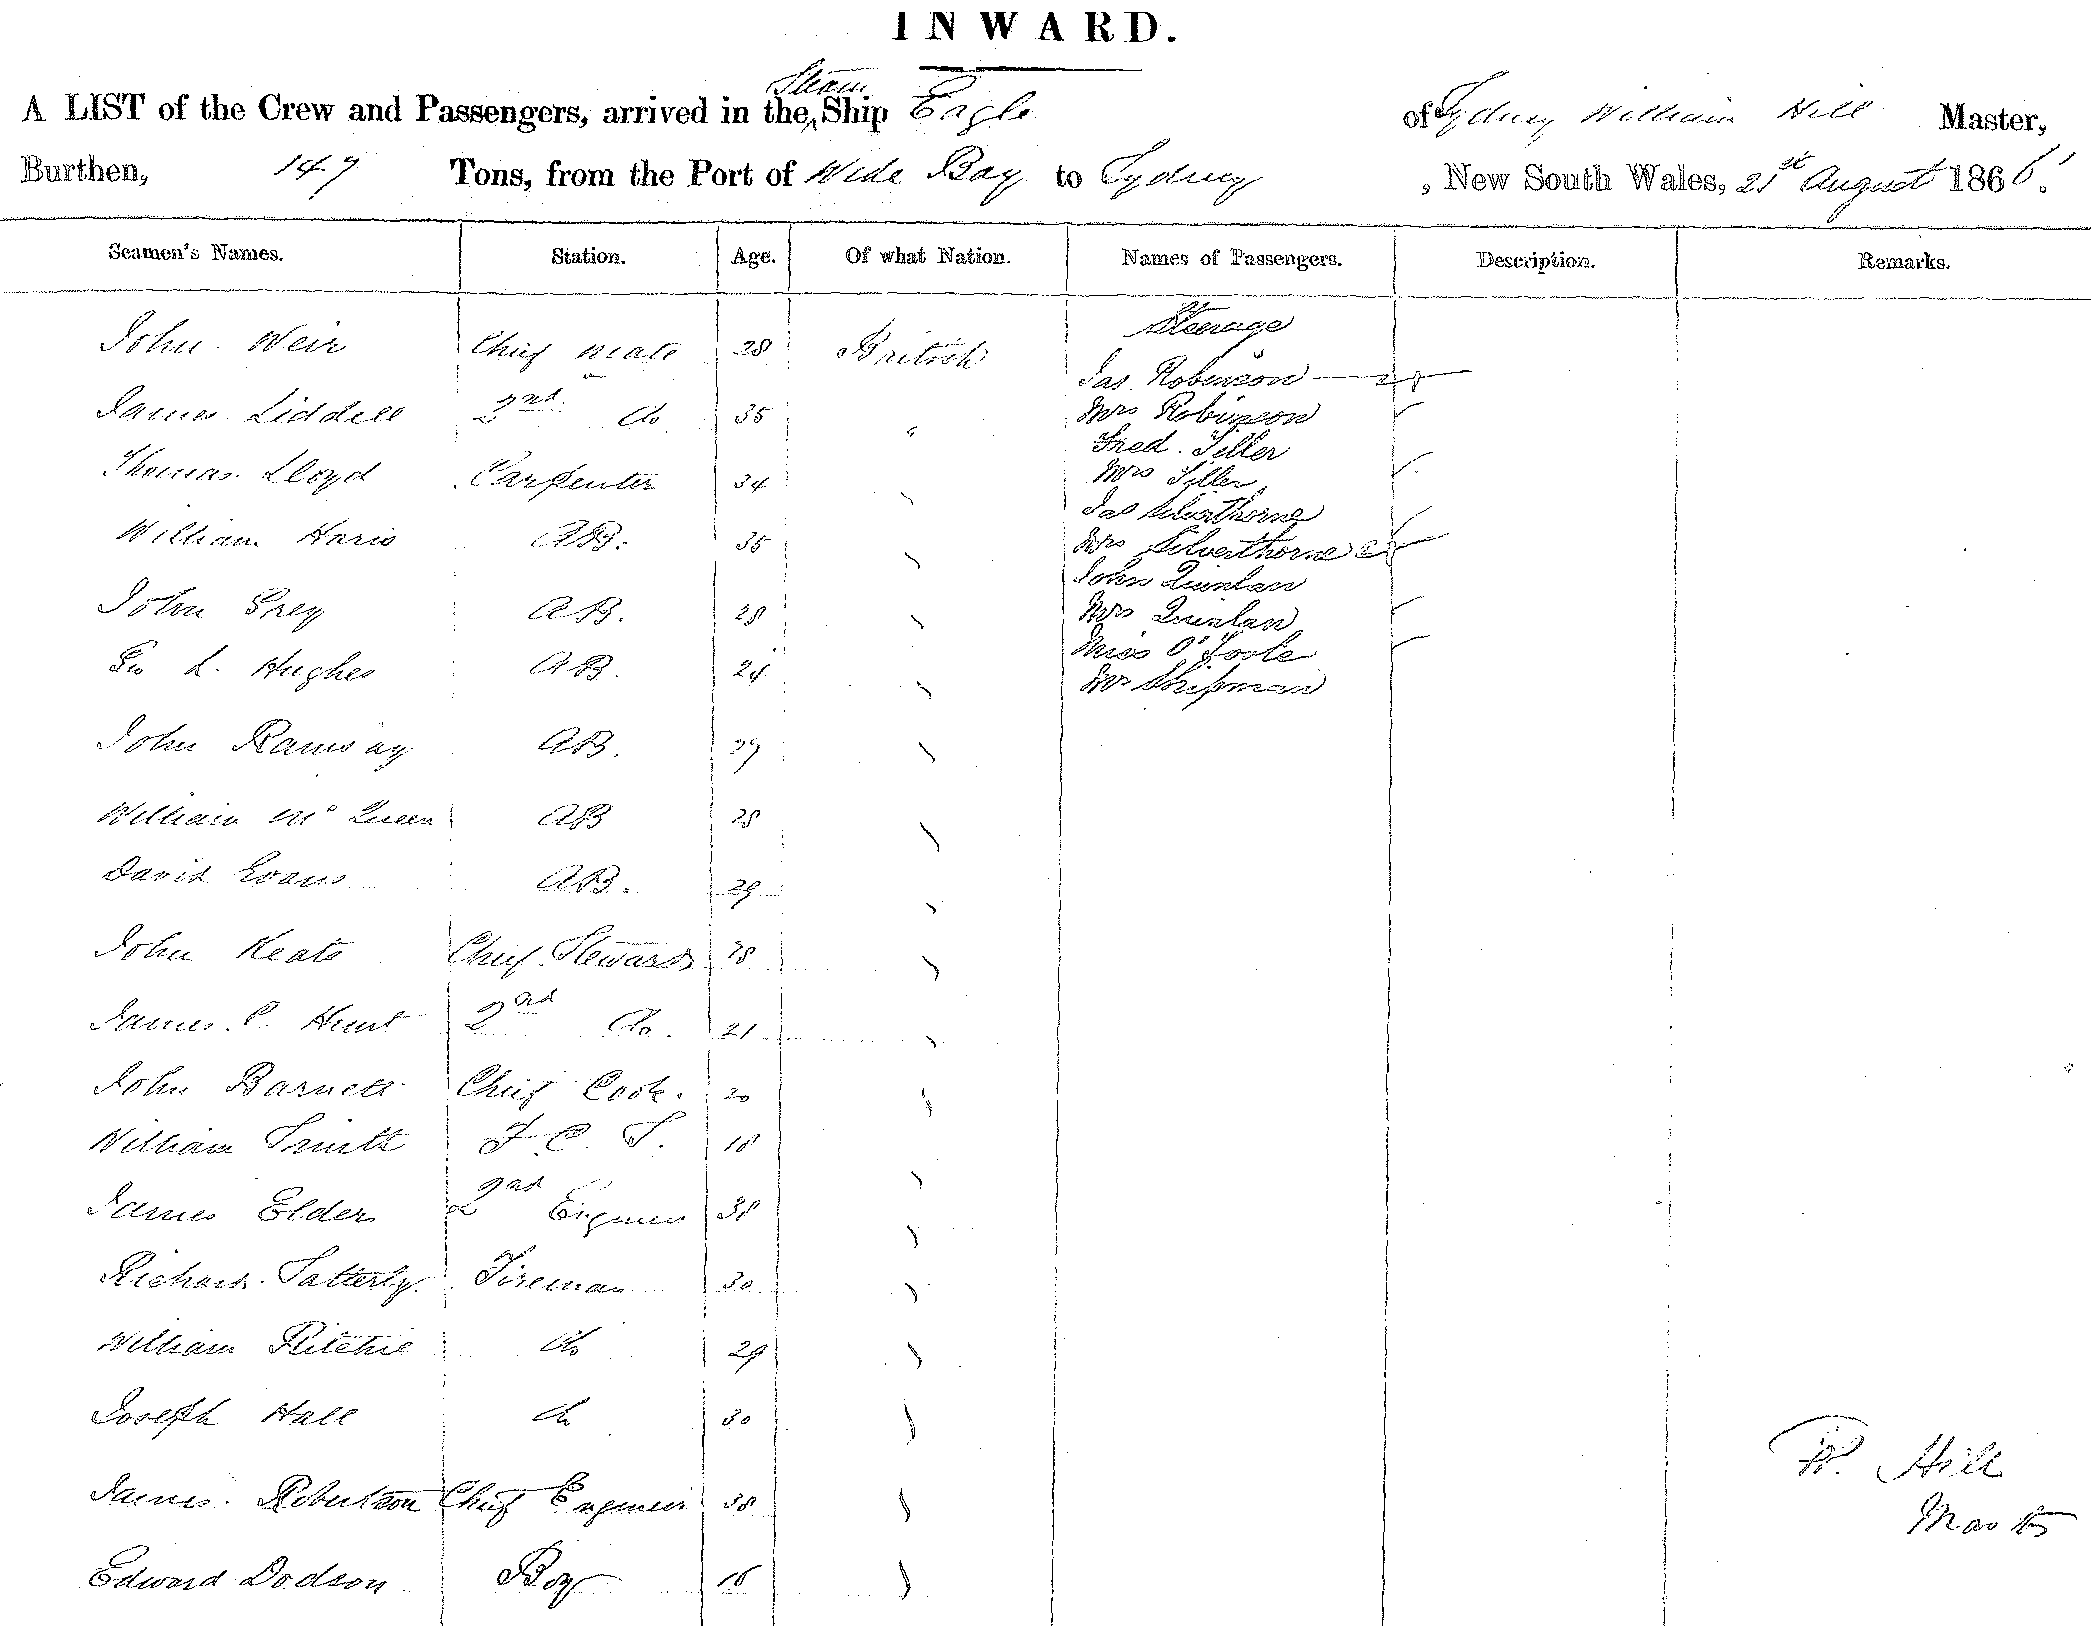 INWARD.
A LIST of the Crew and Passengers, arrived in the Steam Ship Eagle of Sydney William Hill Master,
Burthen, 147 Tons, from the Port of Wide Bay to Sydney, New South Wales, 21st August 1866.
Seamen's Names. Station. Age. Of what Nation. Names of Passengers. Description. Remarks.
Steerage
John Weir Chief Mate 28 British
Jas Robinson
James Liddell 2nd do 35 "
Mrs Robinson
Fred. Tiller
Thomas Lloyd Carpenter 34
Mrs Tiller
Jas Silverthorne
William Haris AB. 35
Mrs Silverthorne
John Quinlan
John Grey AB. 28
Mrs Quinlan
Miss O'Toole
L. Hughes AB. 24
Mr Shipman
John Ramsay AB. 29
William McQueen AB 28
David Evans AB. 29
John Keats Chief Steward 28
James C. Hunt 2nd do. 21
John Barnett Chief Cook. 20
William Smith F. C. S. 18
James Elder 2nd Engineer 38
Richard Satterly Fireman 30
William Ritchie do 29
Joseph Hall do 30
W. Hill
James Robertson Chief Engineer 38
Master
Edward Dodson Boy 16